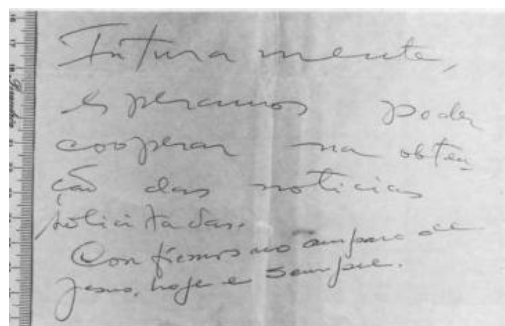 Futuramente,
esperamos poder
cooperar na obten
ção das noticias
solicitadas.
Confiemos no amparo de
Jesus, hoje e sempre.